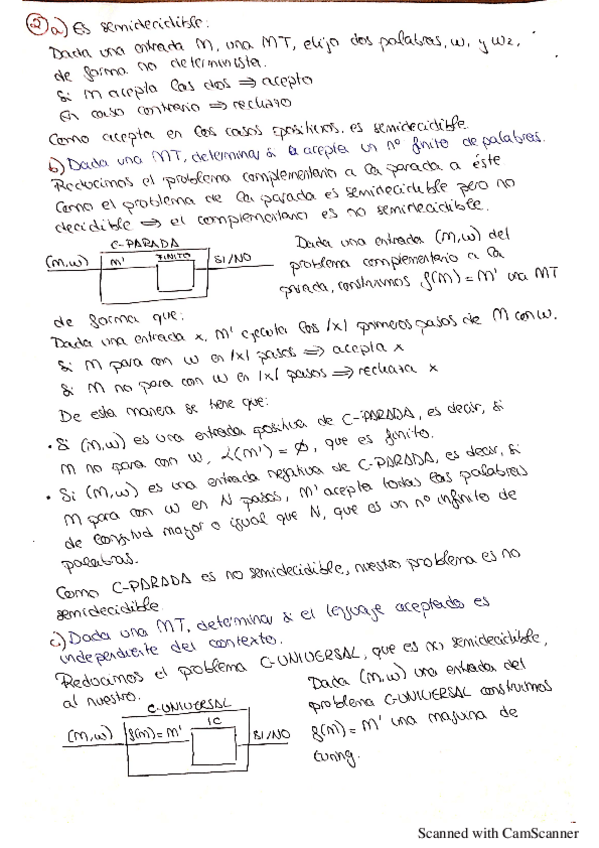 2) a) Es semidecidible:
Dada una entrada M, una MT, elijo dos palabras, w₁ y w₂,
de forma no determinista.
Si M acepta las dos ⇒ acepto
En caso contrario ⇒ rechazo
Como acepta en los casos positivos, es semidecidible.
b) Dada una MT, determinar si la acepta un nº finito de palabras.
Reducimos el problema complementario a la parada a éste
Como el problema de la parada es semidecidible pero no
decidible ⇒ el complementario es no semidecidible.
C-PARADA
(M,w) M' FINITO SI/NO
Dada una entrada (M,w) del
problema complementario a la
parada, construimos f(M) = M' una MT
de forma que:
Dada una entrada x, M' ejecuta los |x| primeros pasos de M con w.
Si M para con w en |x| pasos ⇒ acepta x
Si M no para con w en |x| pasos ⇒ rechaza x
De esta manera se tiene que:
• Si (M,w) es una entrada positiva de C-PARADA, es decir, si
M no para con w, L(M') = ∅, que es finito.
• Si (M,w) es una entrada negativa de C-PARADA, es decir, si
M para con w en N pasos, M' acepta todas las palabras
de longitud mayor o igual que N, que es un nº infinito de
palabras.
Como C-PARADA es no semidecidible, nuestro problema es no
semidecidible
c) Dada una MT, determinar si el lenguaje aceptado es
independiente del contexto.
Reducimos el problema C-UNIVERSAL, que es no semidecidible,
al nuestro.
C-UNIVERSAL
(M,w) f(M)=M' IC SI/NO
Dada (M,w) una entrada del
problema C-UNIVERSAL construimos
f(M) = M' una maquina de
turing.
Scanned with CamScanner